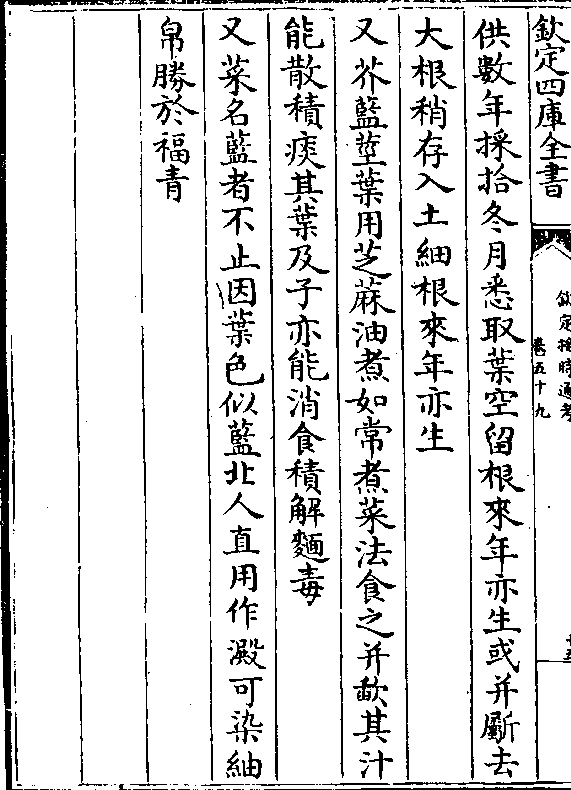 欽定四庫全書
欽定授時通考
卷五十九
供數年採拾冬月悉取葉空留根來年亦生或并斸去
大根稍存入土細根來年亦生
又芥藍莖葉用芝蔴油煮如常煮菜法食之并歠其汁
能散積痰其葉及子亦能消食積解麵毒
又菜名藍者不止因葉色似藍北人直用作澱可染紬
帛勝於福青